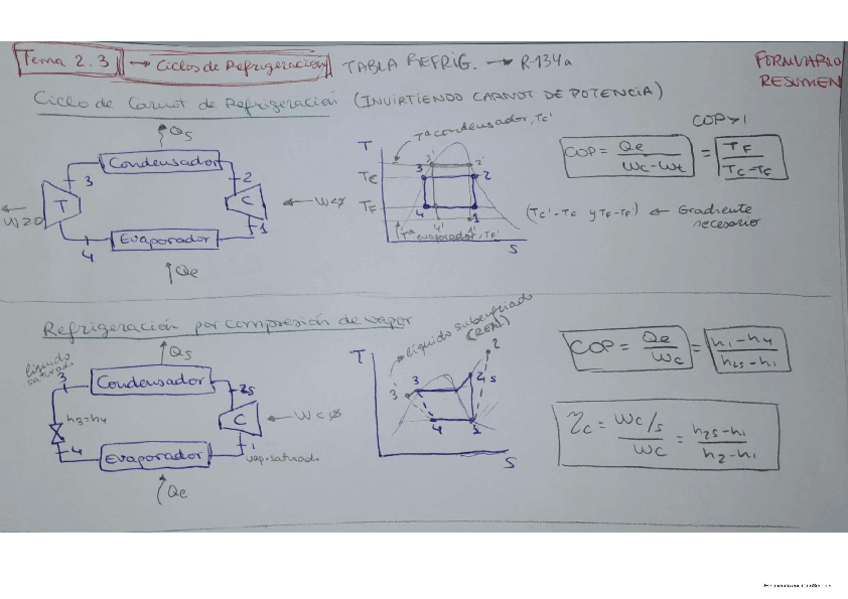 Tema 2.3 → Ciclos de Refrigeración TABLA REFRIG. → R-134a
FORMULARIO RESUMEN
Ciclo de Carnot de Refrigeración (INVIRTIENDO CARNOT DE POTENCIA)
Qs
Condensador
3
2
T
C
W<0
W>0
Evaporador
4
1
Qe
T
Tª condensador, Tc'
Tc
TF
3'
2'
3
2
4
1
4'
1'
Tª evaporador, TF'
S
COP>1
COP = Qe / Wc-Wt = TF / Tc-TF
(Tc'-Tc y TF-TF') ← Gradiente necesario
Refrigeración por compresión de vapor
Qs
líquido saturado
3
Condensador
2s
h3=h4
C
Wc<0
4
Evaporador
1
vap. saturado
Qe
T
líquido subenfriado (REAL)
2
3'
3
2s
4
1
S
COP = Qe / Wc = h1-h4 / h2s-h1
ηc = Wc/s / Wc = h2s-h1 / h2-h1